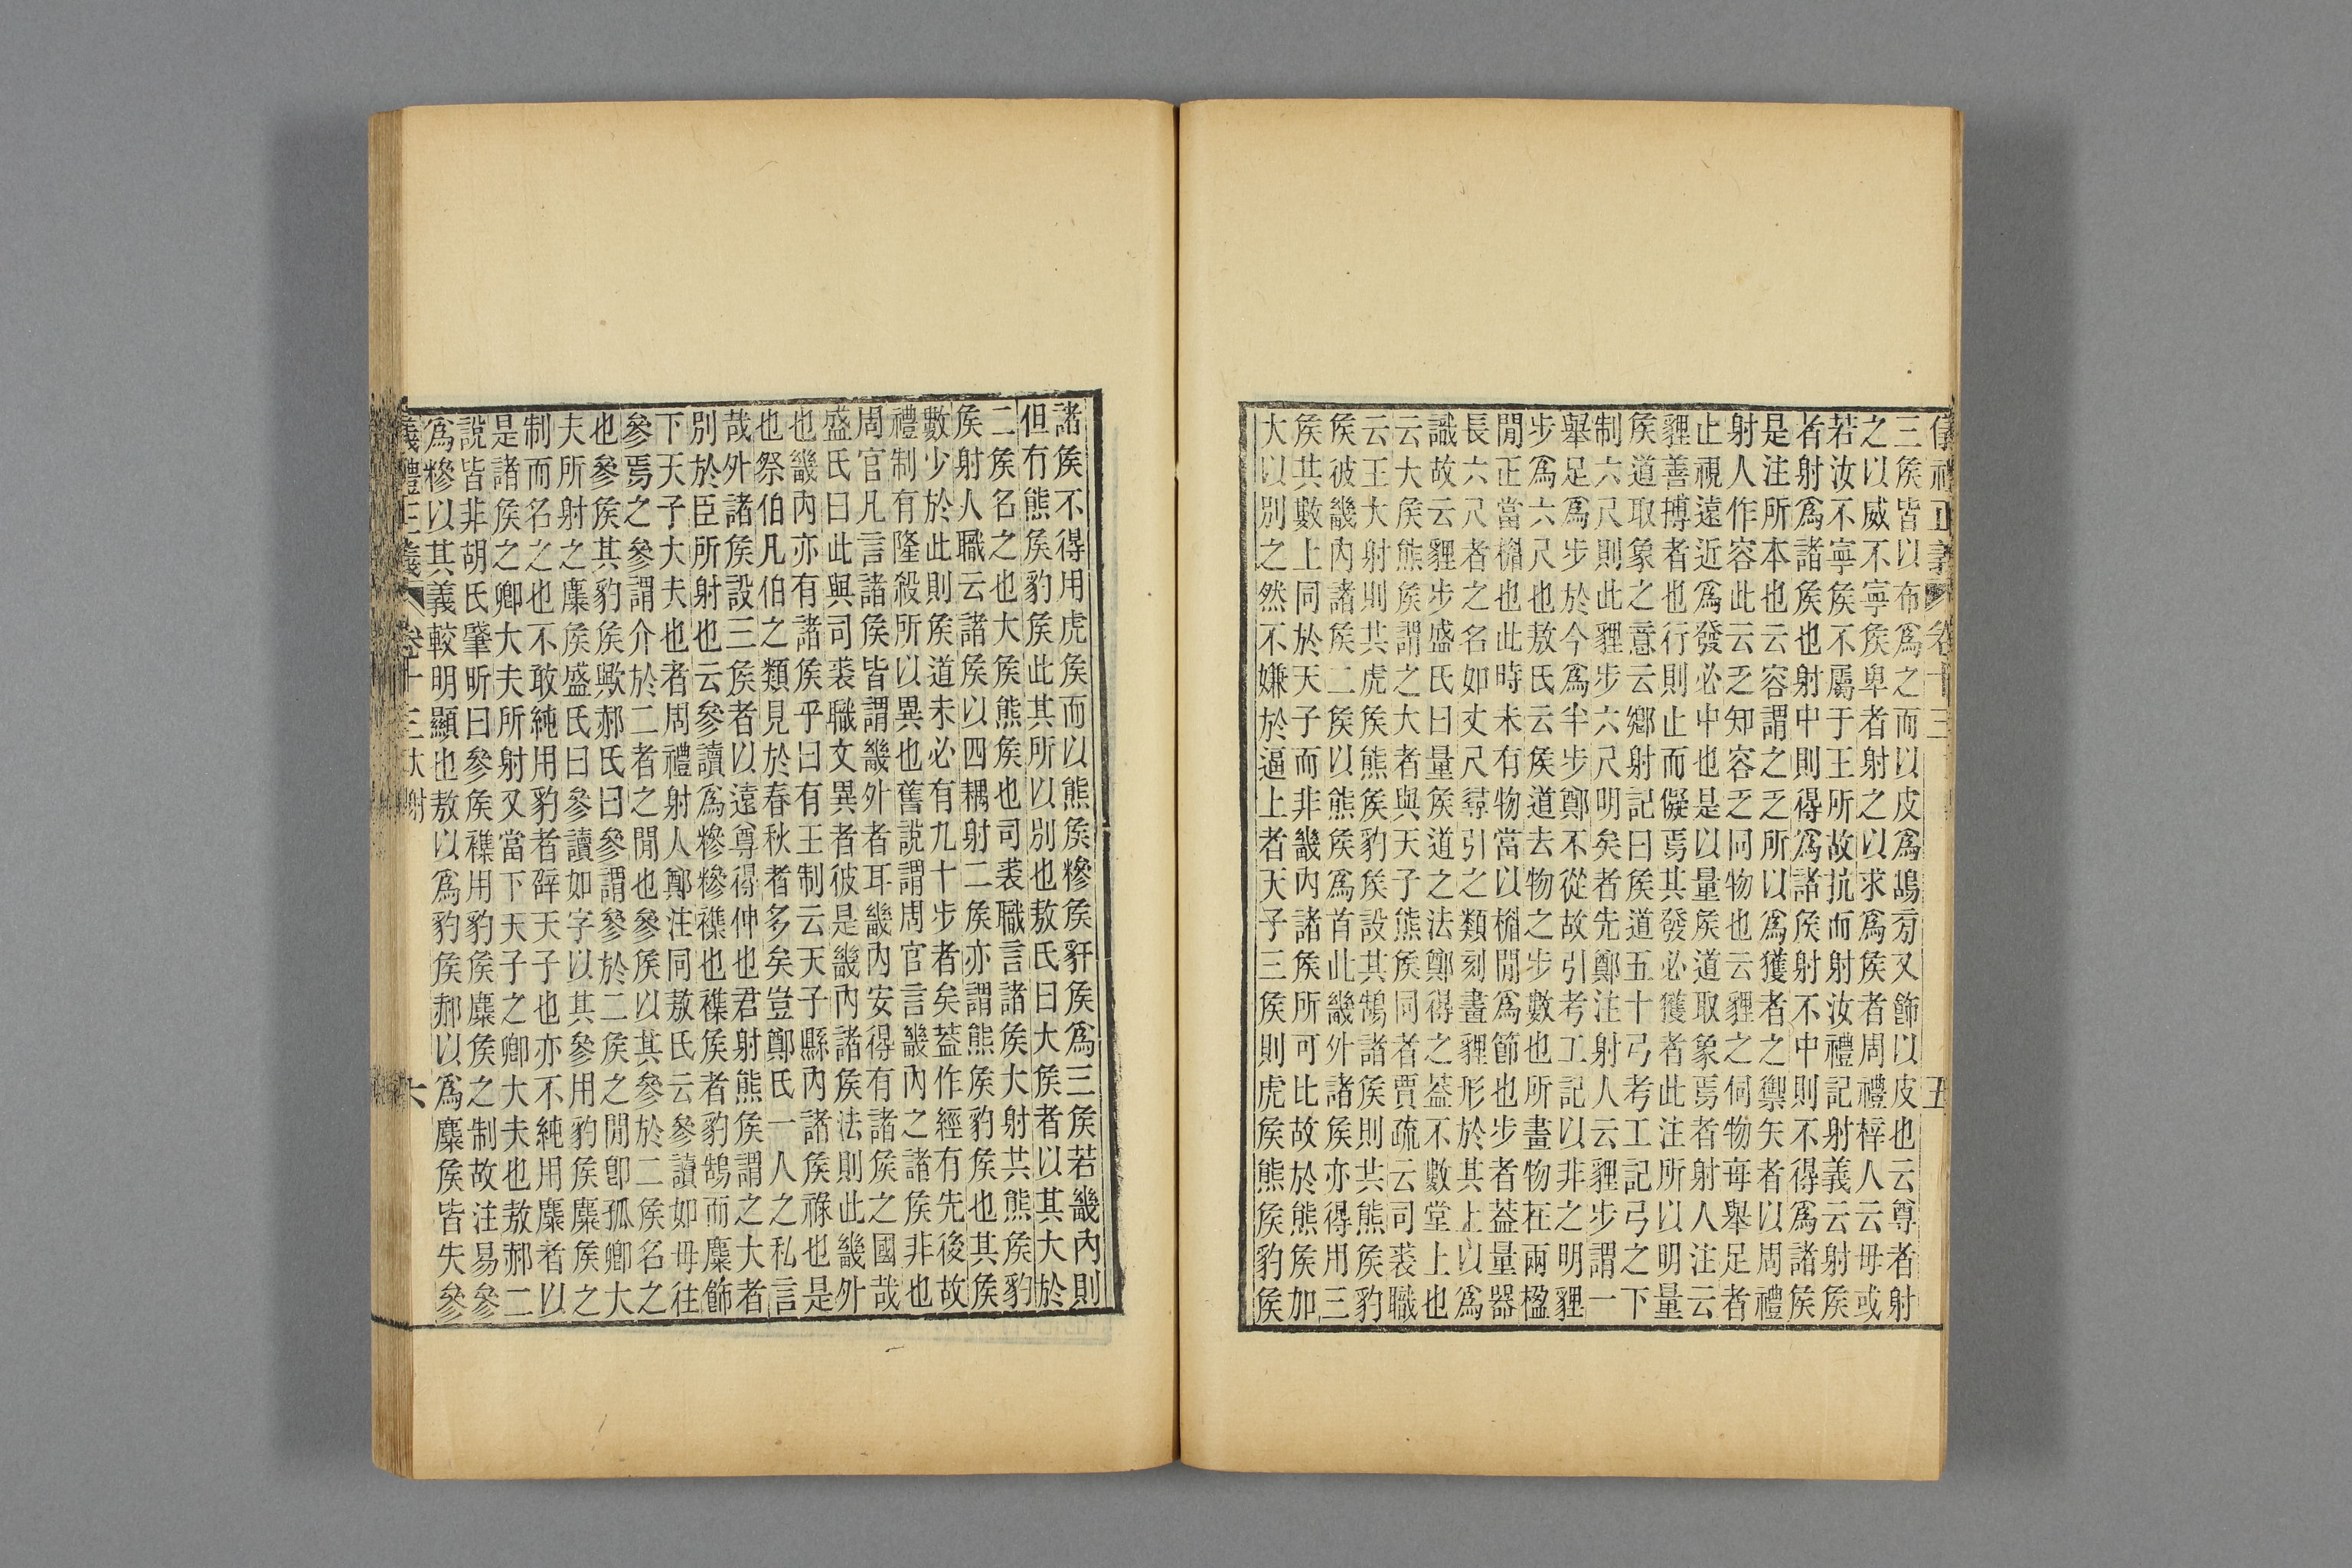 儀禮正義 卷十三 五
三矦皆以布爲之而以皮爲鵠㫄又飾以皮也云尊者射
之以威不寧矦卑者射之以求爲矦者周禮梓人云毋或
若汝不寧矦不屬于王所故抗而射汝禮記射義云射矦
者射爲諸矦也射中則得爲諸矦射不中則不得爲諸矦
是注所本也云容謂之乏所以爲獲者之禦矢者以周禮
射人作容此云乏知容乏同物也云貍之伺物每舉足者
止視遠近爲發必中也是以量矦道取象焉者射人注云
貍善搏者也行則止而儗焉其發必獲者此注所以明量
矦道取象之意云鄉射記曰矦道五十弓考工記弓之下
制六尺則此貍步六尺明矣者先鄭注射人云貍步謂一
舉足爲步於今爲半步鄭不從故引考工記以非之明貍
步爲六尺也敖氏云矦道去物之步數也所畫物在兩楹
閒正當楣也此時未有物當以楣閒爲節也步者蓋量器
長六尺者之名如丈尺尋引之類刻畫貍形於其上以爲
識故云貍步盛氏曰量矦道之法鄭得之蓋不數堂上也
云大矦熊矦謂之大者與天子熊矦同者賈疏云司裘職
云王大射則共虎矦熊矦豹矦設其鵠諸矦則共熊矦豹
矦彼畿內諸矦二矦以熊矦爲首此畿外諸矦亦得用三
矦其數上同於天子而非畿內諸矦所可比故於熊矦加
大以別之然不嫌於逼上者天子三矦則虎矦熊矦豹矦
諸矦不得用虎矦而以熊矦糝矦豻矦爲三矦若畿內則
但有熊矦豹矦此其所以別也敖氏曰大矦者以其大於
二矦名之也大矦熊矦也司裘職言諸矦大射共熊矦豹
矦射人職云諸矦以四耦射二矦亦謂熊矦豹矦也其矦
數少於此則矦道未必有九十步者矣蓋作經有先後故
禮制有隆殺所以異也舊說謂周官言畿內之諸矦非也
周官凡言諸矦皆謂畿外者耳畿內安得有諸矦之國哉
盛氏曰此與司裘職文異者彼是畿內諸矦法則此畿外
也畿內亦有諸矦乎曰有王制云天子縣內諸矦祿也是
也祭伯凡伯之類見於春秋者多矣豈鄭氏一人之私言
哉外諸矦設三矦者以遠尊得伸也君射熊矦謂之大者
別於臣所射也云參讀爲糝糝襍也襍矦者豹鵠而麋飾
下天子大夫也者周禮射人鄭注同敖氏云參讀如毋往
參焉之參謂介於二者之閒也參矦以其參於二矦名之
也參矦其豹矦歟郝氏曰參謂參於二矦之閒卽孤卿大
夫所射之麋矦盛氏曰參讀如字以其參用豹矦麋矦之
制而名之也不敢純用豹者辟天子也亦不純用麋者以
是諸矦之卿大夫所射又當下天子之卿大夫也敖郝二
說皆非胡氏肇昕曰參矦襍用豹矦麋矦之制故注易參
爲糝以其義較明顯也敖以爲豹矦郝以爲麋矦皆失參
義禮正義 卷十三大射 六